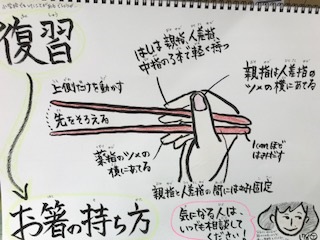 復習
はしは親指、人差指、
中指の3本で軽く持つ
親指は人差指の
ツメの横にあてる
上側だけを動かす
先をそろえる
1cmほど
はみだす
薬指のツメの
横にあてる
親指と人差指の間にはさみ固定
お箸の持ち方
気になる人は、
いつでも相談して
ください!